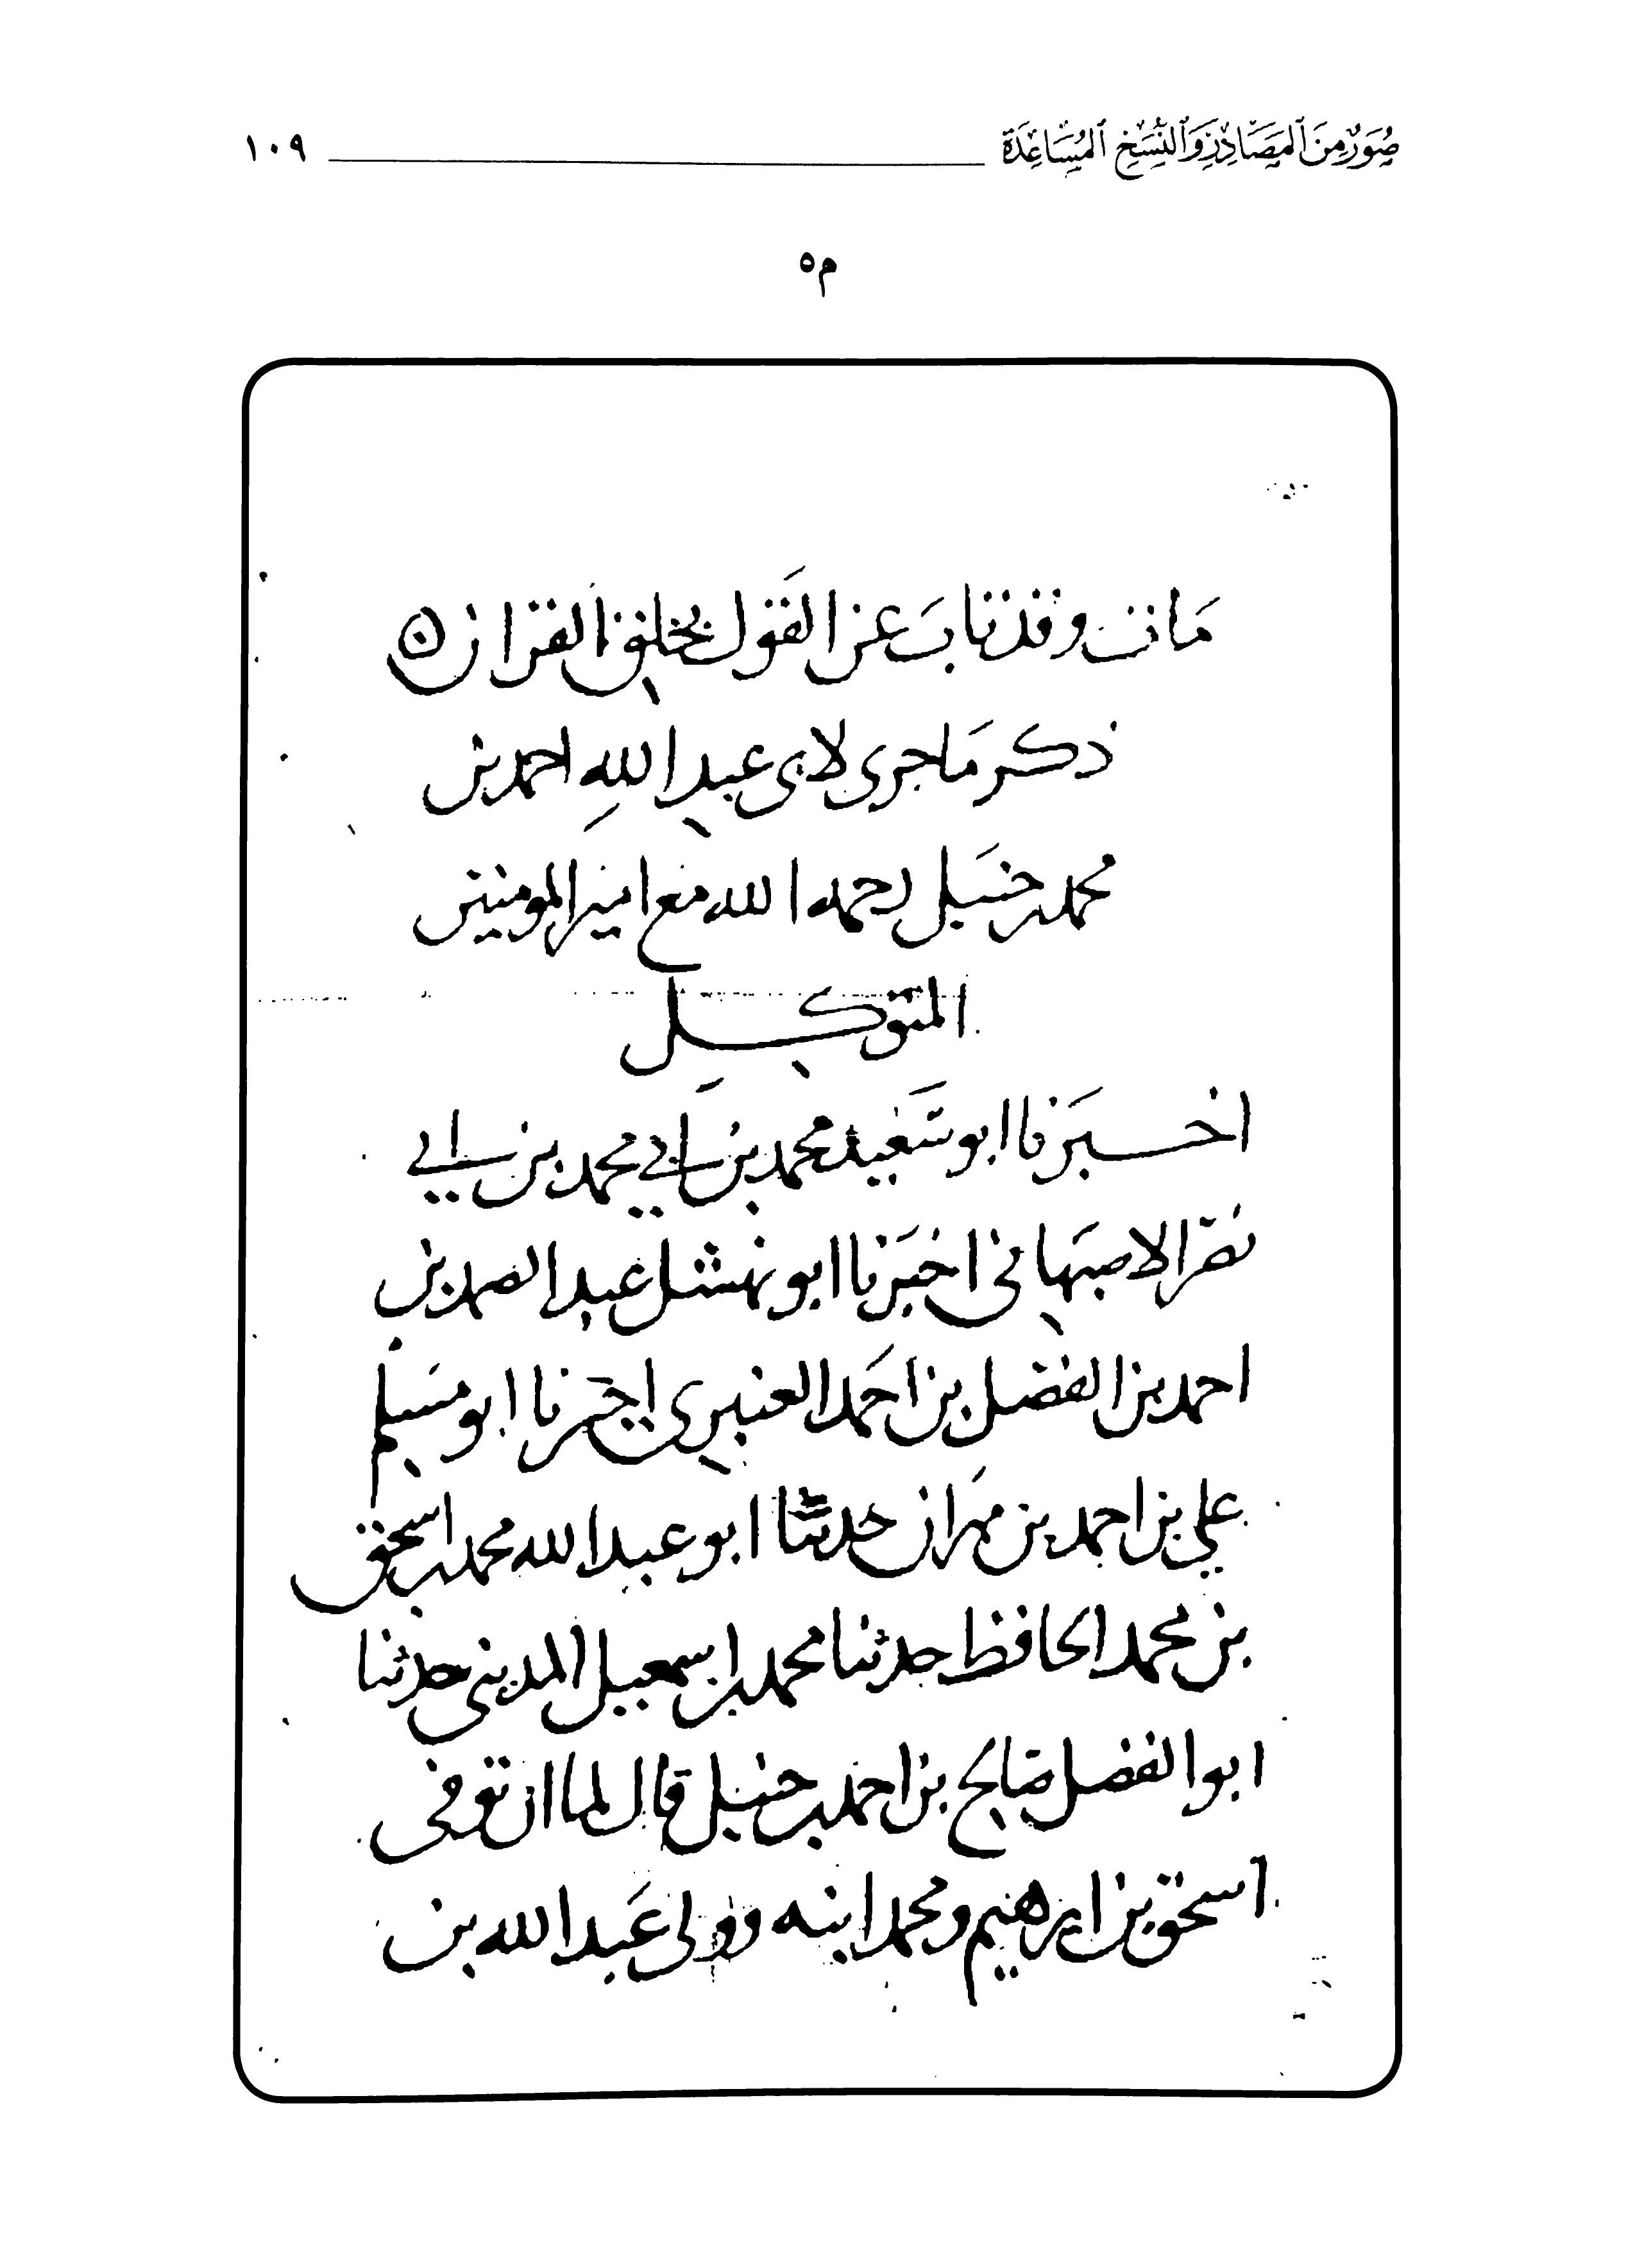 صُوَرٌ مِنَ ٱلمَصَادِرِ وَٱلنُّسَخِ ٱلمُسَاعِدَةِ ١٠٩
م٥
مات وقد تاب عن القول بخلق القران
ذكر ما جرى لابى عبد الله احمد بن
محمد بن حنبل رحمه الله مع امير المومنين
المتوكل
اخبرنا ابو سعيد محمد بن ابي محمد بن ابي
نصر الاصبهاني اخبرنا ابو نهشل عبد الصمد بن
احمد بن الفضل بن احمد العنبري اخبرنا ابو مسلم
علي بن احمد بن مهران حدثنا ابو عبد الله محمد بن اسحق
بن محمد الحافظ حدثنا محمد بن اسمعيل المديني حدثنا
ابو الفضل صالح بن احمد بن حنبل قال لما ان توفى
اسحق بن ابرهيم ومحمد ابنه وولى عبد الله بن